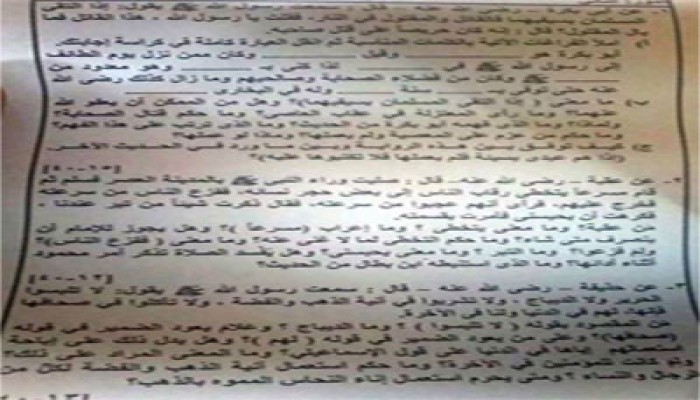 المسلمان بسيفيهما فالقاتل والمقتول في النار. فقلت يا رسول الله ، هذا القاتل فما
بال المقتول؟ قال : إنه كان حريصاً على قتل صاحبه.
أ) املأ الفراغات الآتية بالكلمات المناسبة ثم انقل العبارة كاملة في كراسة إجابتك.
أبو بكرة هو وقيل وكان ممن نزل يوم الطائف
إلى رسول الله ﷺ في إذا كنى بـ وهو معدود من
وكان من فضلاء الصحابة وصالحيهم وما زال كذلك رضى الله
عنه حتى توفى بـ سنة وله في البخارى
ب) ما معنى ( إذا التقى المسلمان بسيفيهما)؟ وهل من الممكن أن يعفو الله
عنهما؟ وما رأى المعتزلة في عقاب العاصى؟ وما حكم قتال الصحابة؟
ولماذا؟ وما الذى فهمه أبو بكرة من الحديث؟ وما الذى ترتب على هذا الفهم؟
وما حكم من عزم على المعصية ولم يعملها؟ وماذا لو عملها؟
ج) كيف توفق بين هذه الرواية وبين ما ورد في الحديث الآخر
(إذا هم عبدى بسيئة فلم يعملها فلا تكتبوها عليه)؟
٢- عن عقبة - رضى الله عنه- قال : صليت وراء النبي ﷺ بالمدينة العصر فسلم ثم
قام مسرعا يتخطى رقاب الناس إلى بعض حجر نسائه، ففزع الناس من سرعته
فخرج عليهم، فرأى أنهم عجبوا من سرعته، فقال ذكرت شيئاً من تبر عندنا ،
فكرهت أن يحبسنى فأمرت بقسمته.
من عقبة؟ وما معنى يتخطى ؟ وما إعراب (مسرعاً )؟ وهل يجوز للإمام أن
ينصرف متى شاء؟ وما حكم التخطى لما لا غنى عنه؟ وما معنى ( ففزع الناس)؟
ولم فزعوا؟ وما التبر ؟ وما معنى يحبسنى؟ وهل يفسد الصلاة تذكر أمر محمود
أثناء أدائها؟ وما الذى تستنبطه
٣- عن حذيفة - رضى الله عنه - قال : سمعت رسول الله ﷺ يقول: لا تلبسوا
الحرير ولا الديباج ، ولا تشربوا في آنية الذهب والفضة ، ولا تأكلوا في صحافها
فإنها لهم في الدنيا ولنا في الآخرة.
من المقصود بقوله ( لا تلبسوا ) ؟ وما الديباج ؟ وعلام يعود الضمير في قوله
(صحافها)؟ وعلى من يعود الضمير في قوله ( لهم )؟ وهل يدل ذلك على إباحة
إياها في الدنيا على قول الإسماعيلي؟ وما المعنى المراد على ذلك؟
في الآخرة؟ وما حكم استعمال آنية الذهب والفضة لكل من
الرجال والنساء ؟ ومتى يحرم استعمال إناء النحاس المموه بالذهب؟